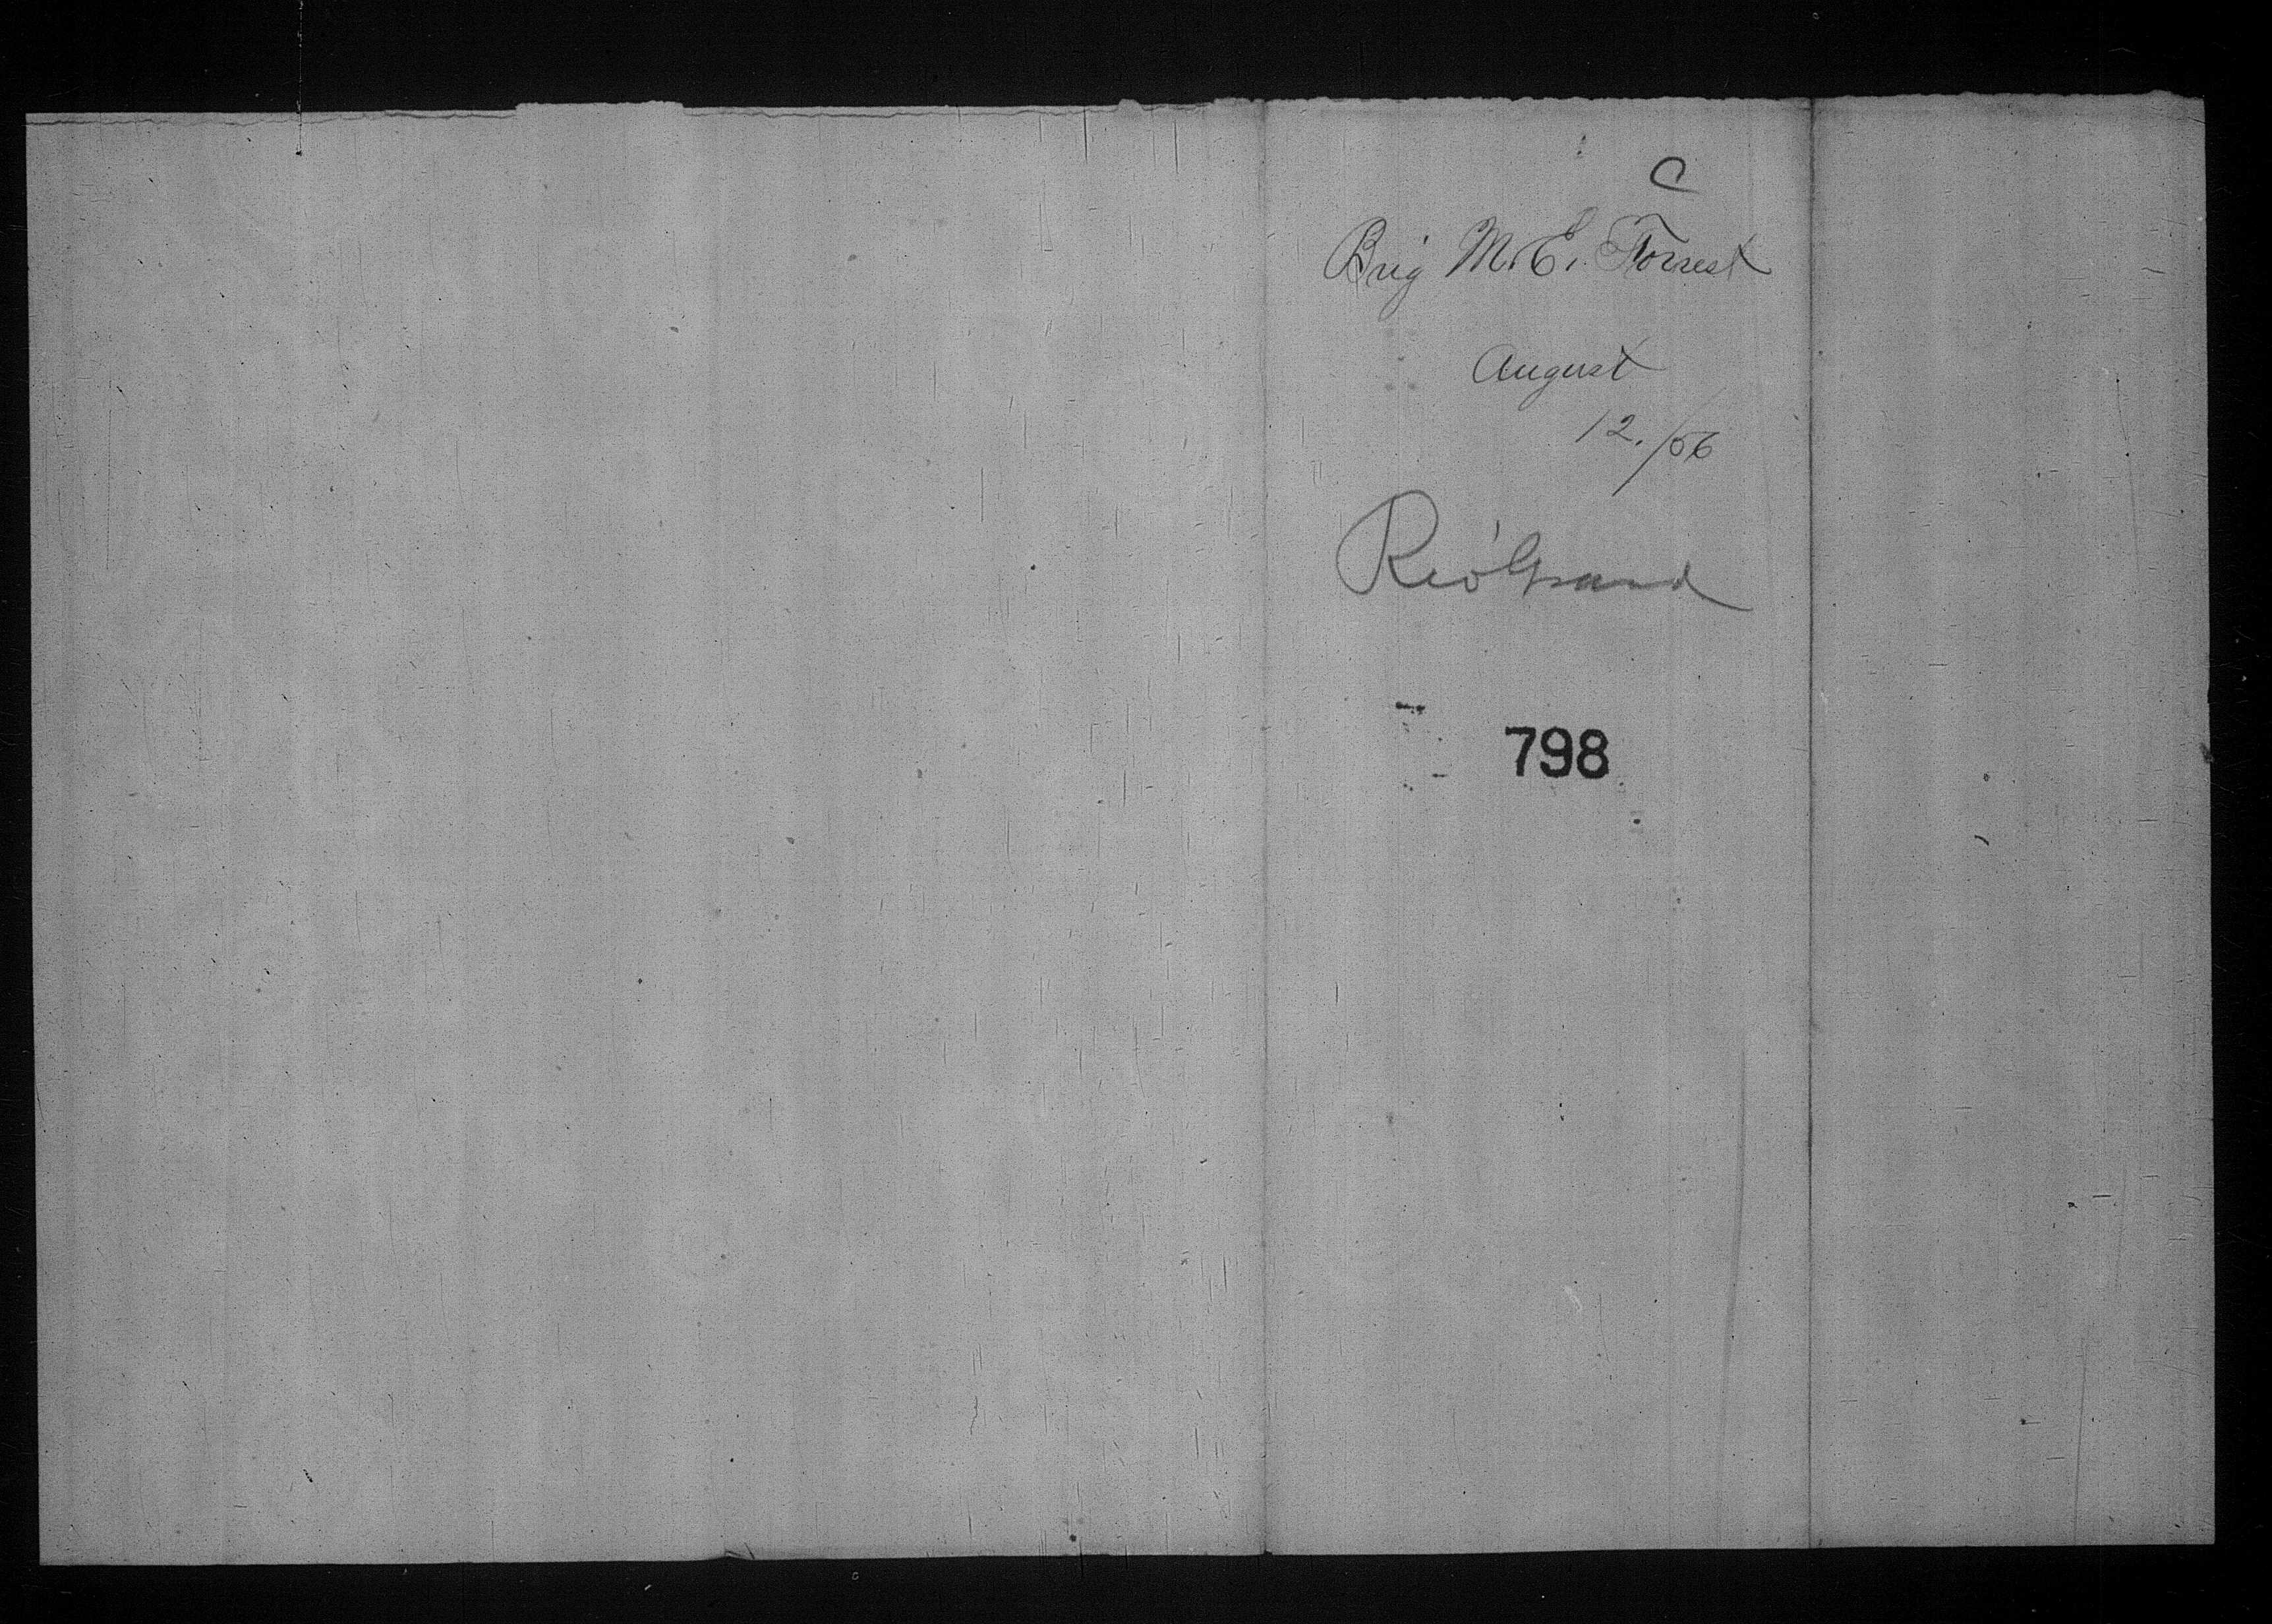 C
Brig M. E. Forrest
August
12./56
Rio Grand
798